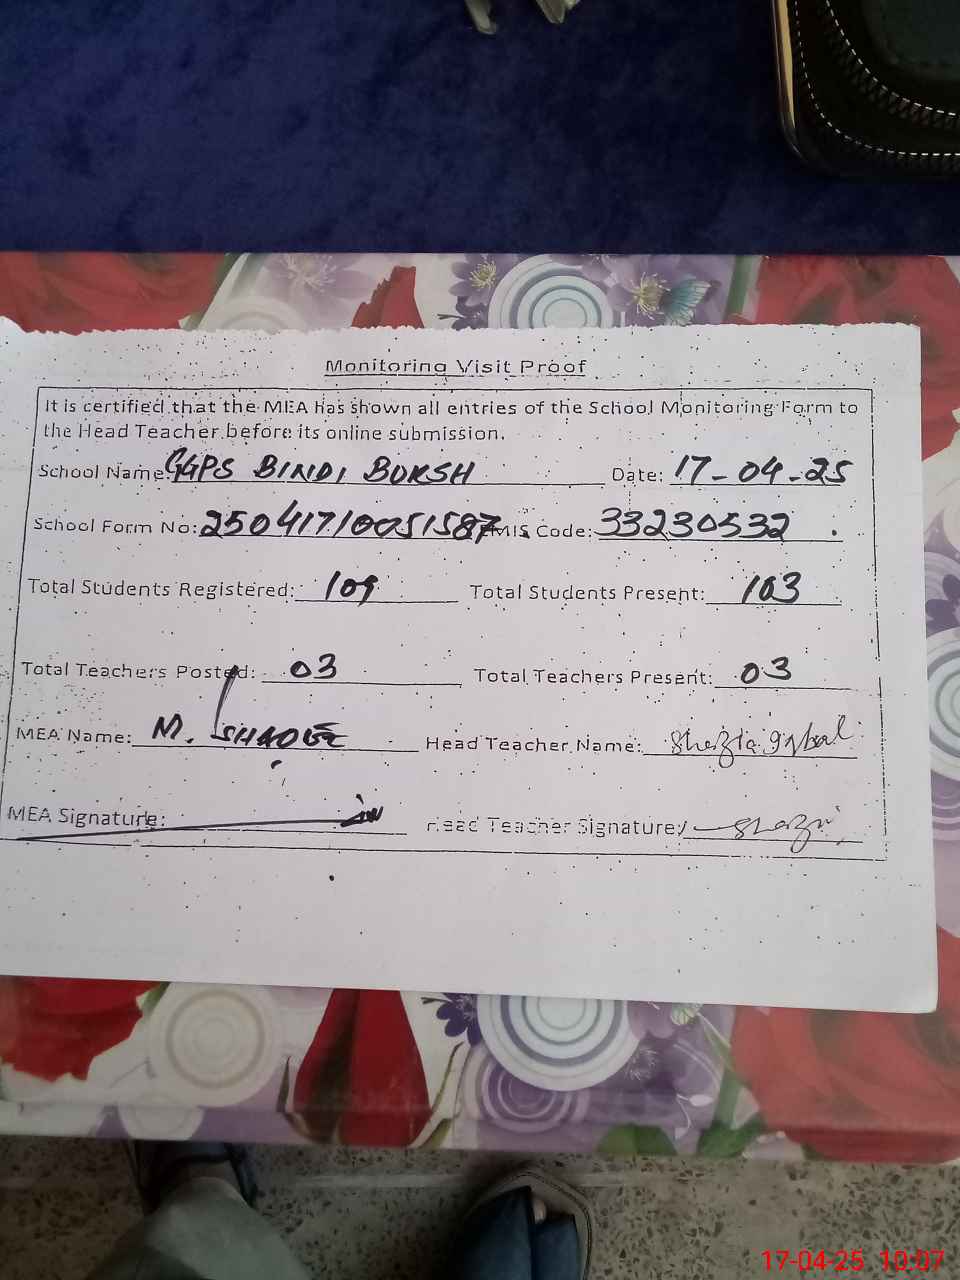 Monitoring Visit Proof
It is certified that the MEA has shown all entries of the School Monitoring Form to
the Head Teacher before its online submission.
School Name: GGPS BINDI BUKSH Date: 17-04-25
School Form No: 25041710051587 EMIS Code: 33230532
Total Students Registered: 109 Total Students Present: 103
Total Teachers Posted: 03 Total Teachers Present: 03
MEA Name: M. Head Teacher Name: Shazia Iqbal
MEA Signature: Head Teacher Signature:
17-04-25 10:07